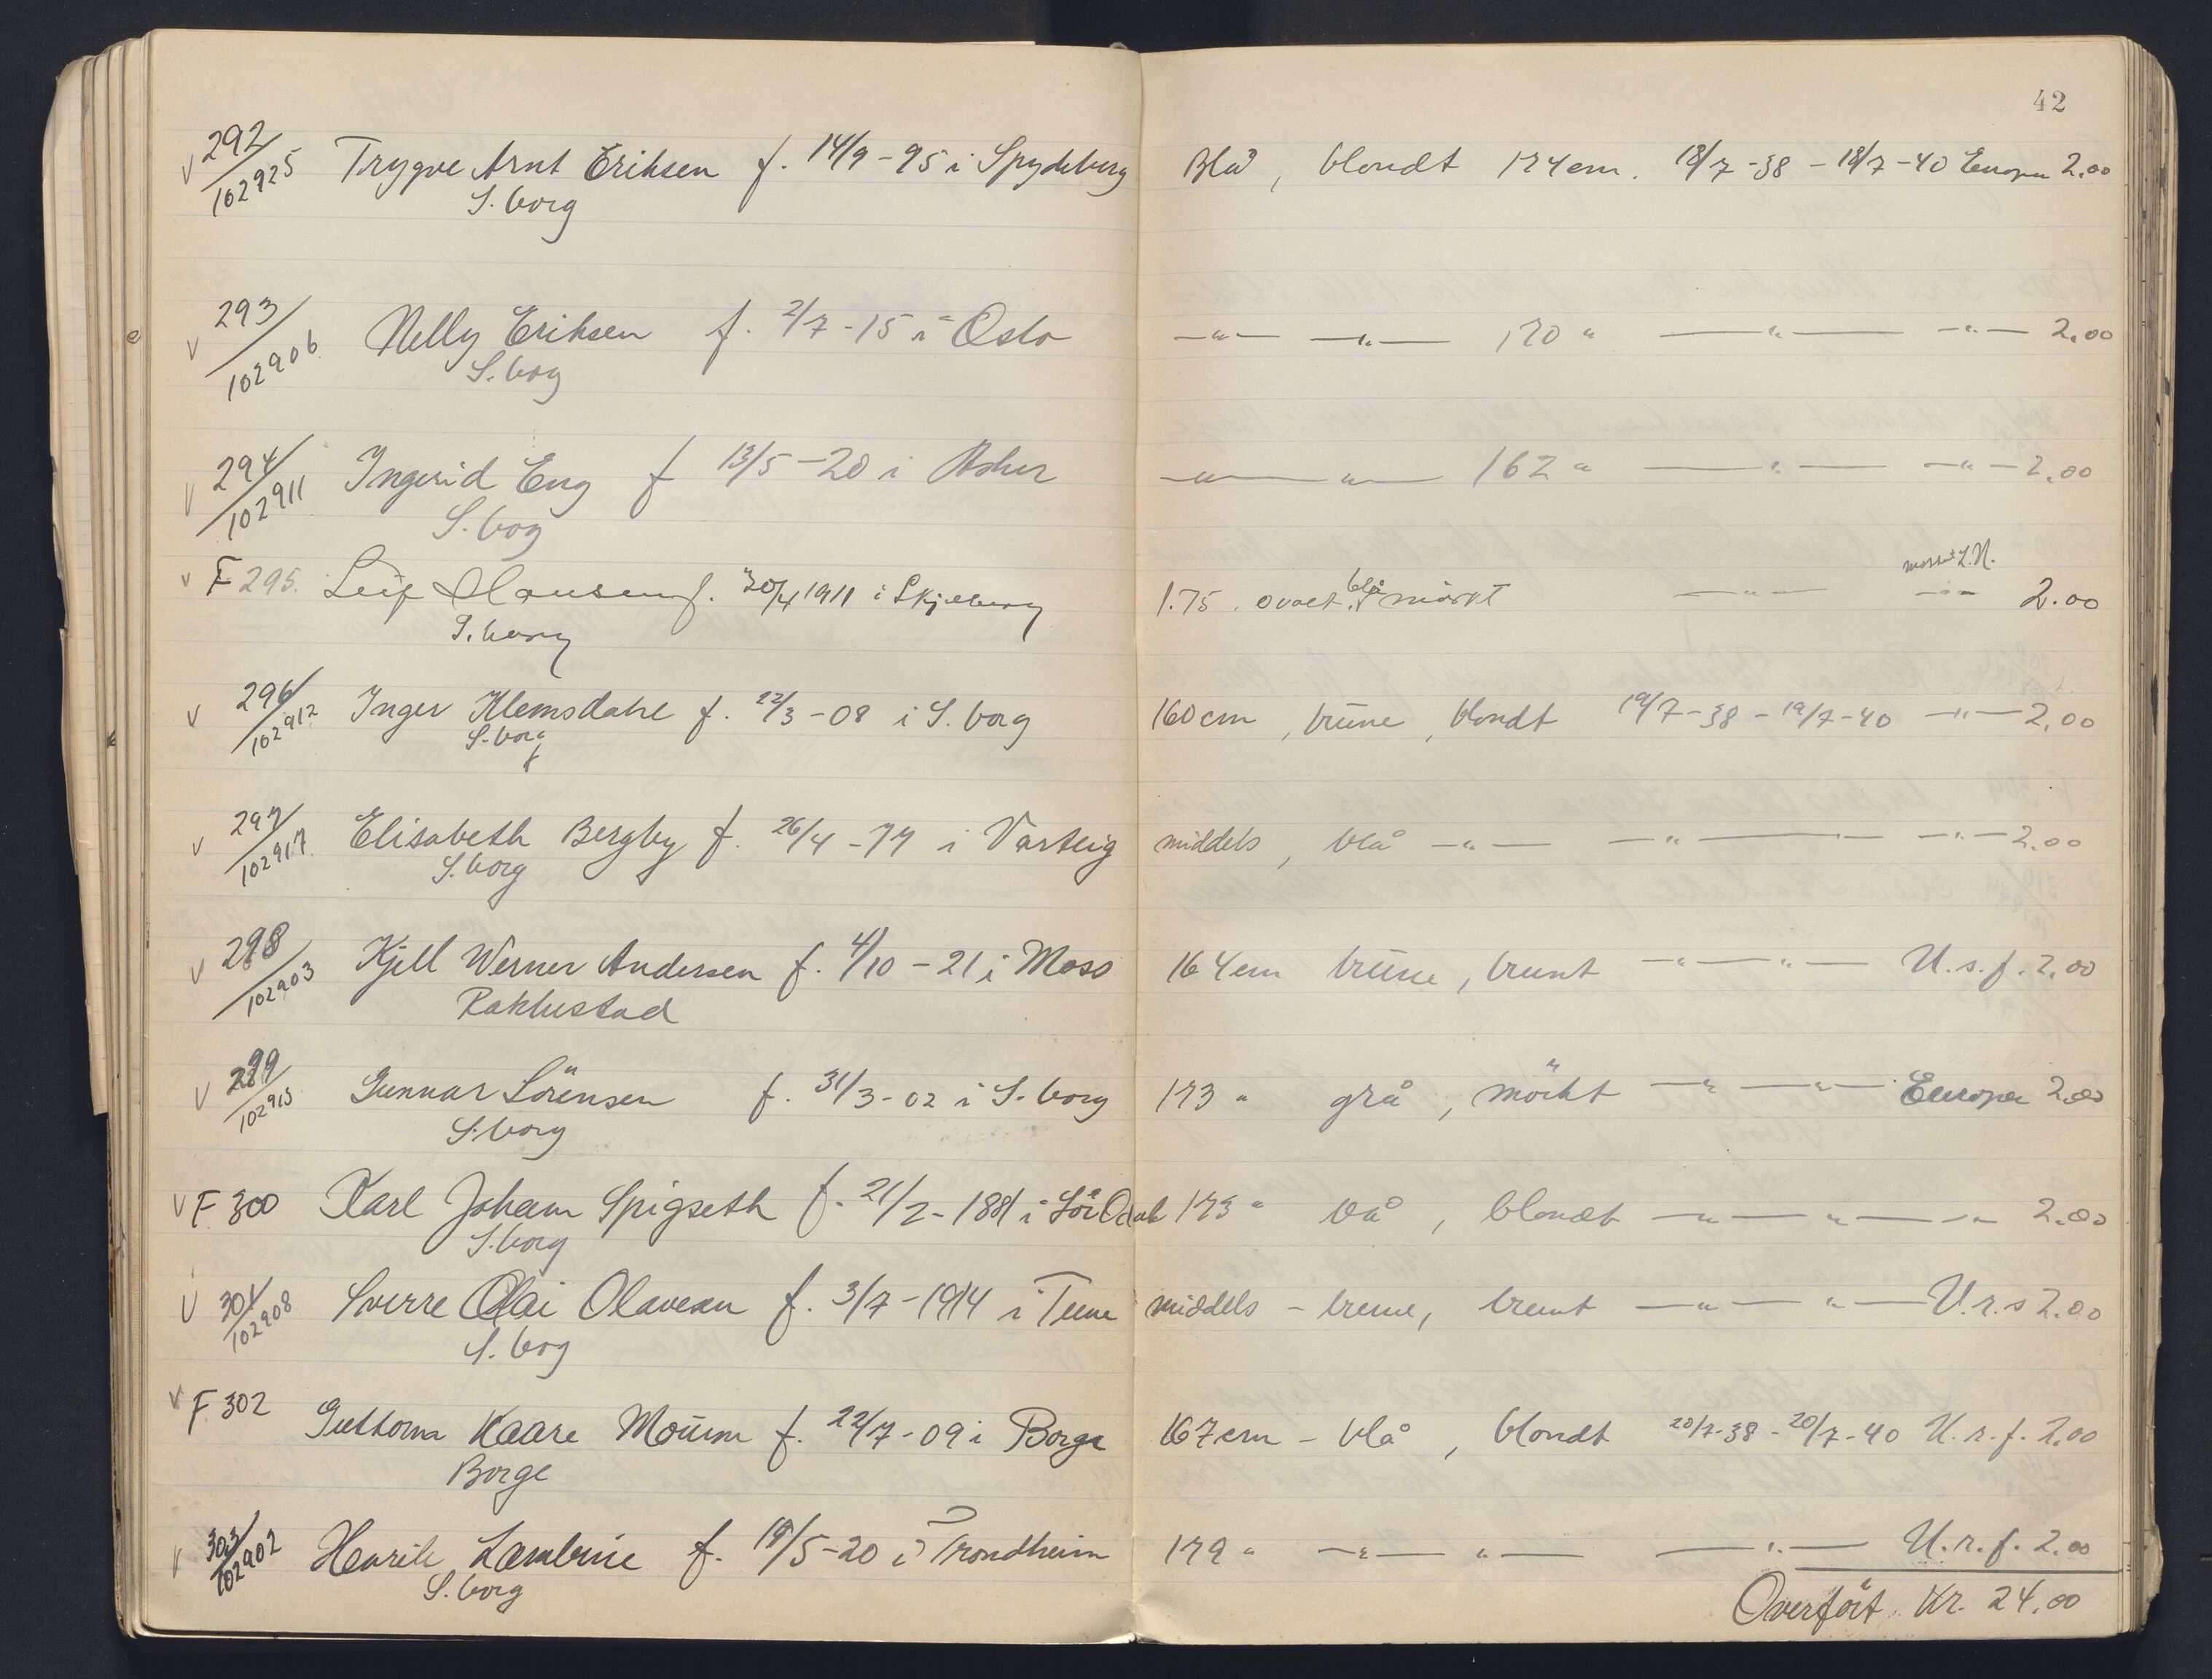 42
292/102925 Trygve Arnt Eriksen f. 14/9-95 i Spydeberg Blå, blondt 174 cm. 18/7-38 - 18/7-40 Europa 2.00
S. borg
293/102906 Nelly Eriksen f. 2/7-15 i Oslo —"— —"— 170 " —"— —"— 2.00
S. borg
294/102911 Ingerid Eng f 13/5-20 i Asker —"— " — 162 " —"— —"— 2.00
S. borg
F 295. Leif Hansen f. 30/4 1911 i Skjeberg 1.75. ovalt. blå mörkt —"— —"— 2.00
S. borg
296/102912 Inger Klemsdahl f. 22/3-08 i S. borg 160 cm, brune, blondt 19/7-38 - 19/7-40 —"— 2,00
S. borg
297/102917 Elisabeth Bergby f. 26/4-77 i Varteig middels, blå —"— —"— —"— —"— 2.00
S. borg
298/102903 Kjell Werner Andersen f. 4/10-21 i Moss 164 cm brune, brunt —"— "— U.s.f. 2,00
Rakkestad
299/102915 Gunnar Sörensen f. 31/3-02 i S. borg 173 " grå, mörkt —"— —"— Europa 2.00
S. borg
F 300 Karl Johan Spigseth f. 21/2-1881 i Sör Odal 173 " blå, blondt —"— "— —"— 2.00
S. borg
301/102908 Sverre Olai Olavesen f. 3/7-1914 i Tune middels - brune, brunt —"— "— U.r.s 2.00
S. borg
F 302 Guttorm Kaare Moum f. 22/7-09 i Borge 167 cm - blå, blondt 20/7-38 - 20/7-40 U.r.f. 2,00
Borge
303/102902 Henrik Lambrie f. 19/5-20 i Trondheim 179 " —"— "— —"— U.r.f. 2.00
S. borg
Overfört Kr. 24,00